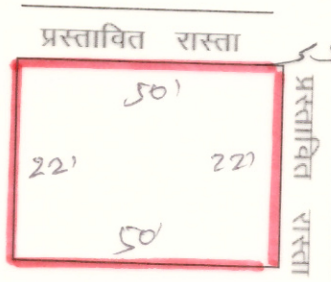 प्रस्तावित रास्ता
50'
22' 22'
50'
प्रस्तावित रास्ता